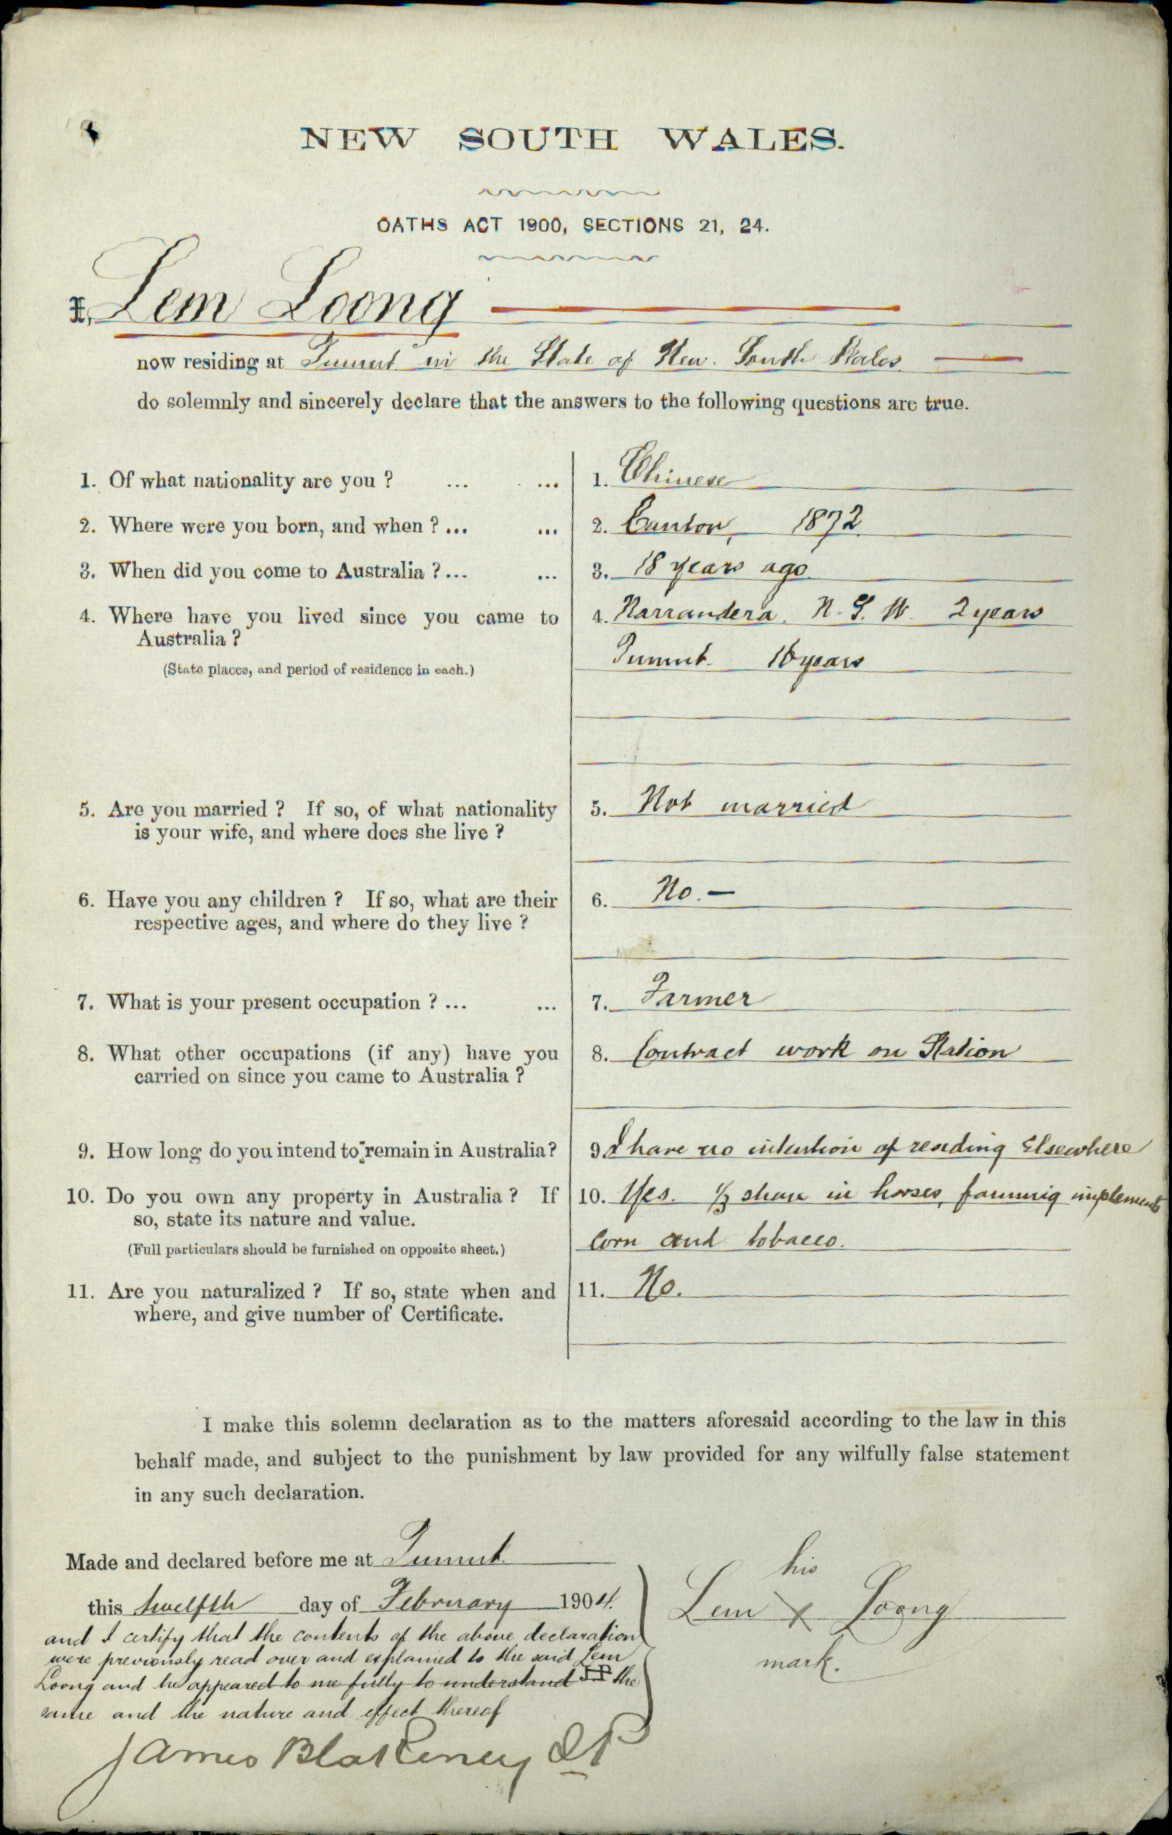 NEW SOUTH WALES.
OATHS ACT 1900, SECTIONS 21, 24.
I, Lem Loong
now residing at Tumut in the State of New South Wales
do solemnly and sincerely declare that the answers to the following questions are true.
1. Of what nationality are you ? ... ... 1. Chinese
2. Where were you born, and when ? ... ... 2. Canton, 1872.
3. When did you come to Australia ? ... ... 3. 18 years ago.
4. Where have you lived since you came to 4. Narrandera. N. S. W. 2 years
Australia ?
(State places, and period of residence in each.) Tumut. 16 years
5. Are you married ? If so, of what nationality 5. Not married
is your wife, and where does she live ?
6. Have you any children ? If so, what are their 6. No. —
respective ages, and where do they live ?
7. What is your present occupation ? ... ... 7. Farmer
8. What other occupations (if any) have you 8. Contract work on Station
carried on since you came to Australia ?
9. How long do you intend to remain in Australia? 9. I have no intention of residing Elsewhere
10. Do you own any property in Australia ? If 10. Yes. 1/3 share in horses, farming implements
so, state its nature and value.
(Full particulars should be furnished on opposite sheet.) Corn and tobacco.
11. Are you naturalized ? If so, state when and 11. No.
where, and give number of Certificate.
I make this solemn declaration as to the matters aforesaid according to the law in this
behalf made, and subject to the punishment by law provided for any wilfully false statement
in any such declaration.
Made and declared before me at Tumut
this twelfth day of February 1904.
and I certify that the contents of the above declaration
were previously read over and explained to the said Lem
Loong and he appeared to me fully to understand J.P. the
same and the nature and effect thereof
James Blakeney J P
his
Lem X Loong
mark.